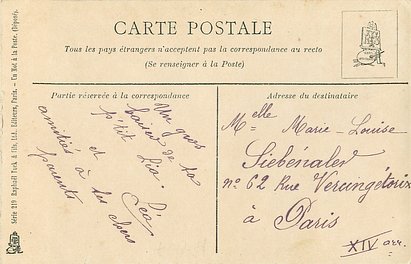 CARTE POSTALE
Tous les pays étrangers n'acceptent pas la correspondance au recto
(Se renseigner à la Poste)
Partie réservée à la correspondance
Adresse du destinataire
Un gros
baiser de la
p'tit' Léa.
Léa
et
amitiés à les chers
parents
Melle Marie-Louise
Siebénaler
No 62 Rue Vercingétorix
à Paris
XIV arr.
Série 919 Raphaël Tuck & fils, Ltd., Éditeurs, Paris. - Un Mot à La Poste. (Déposé).